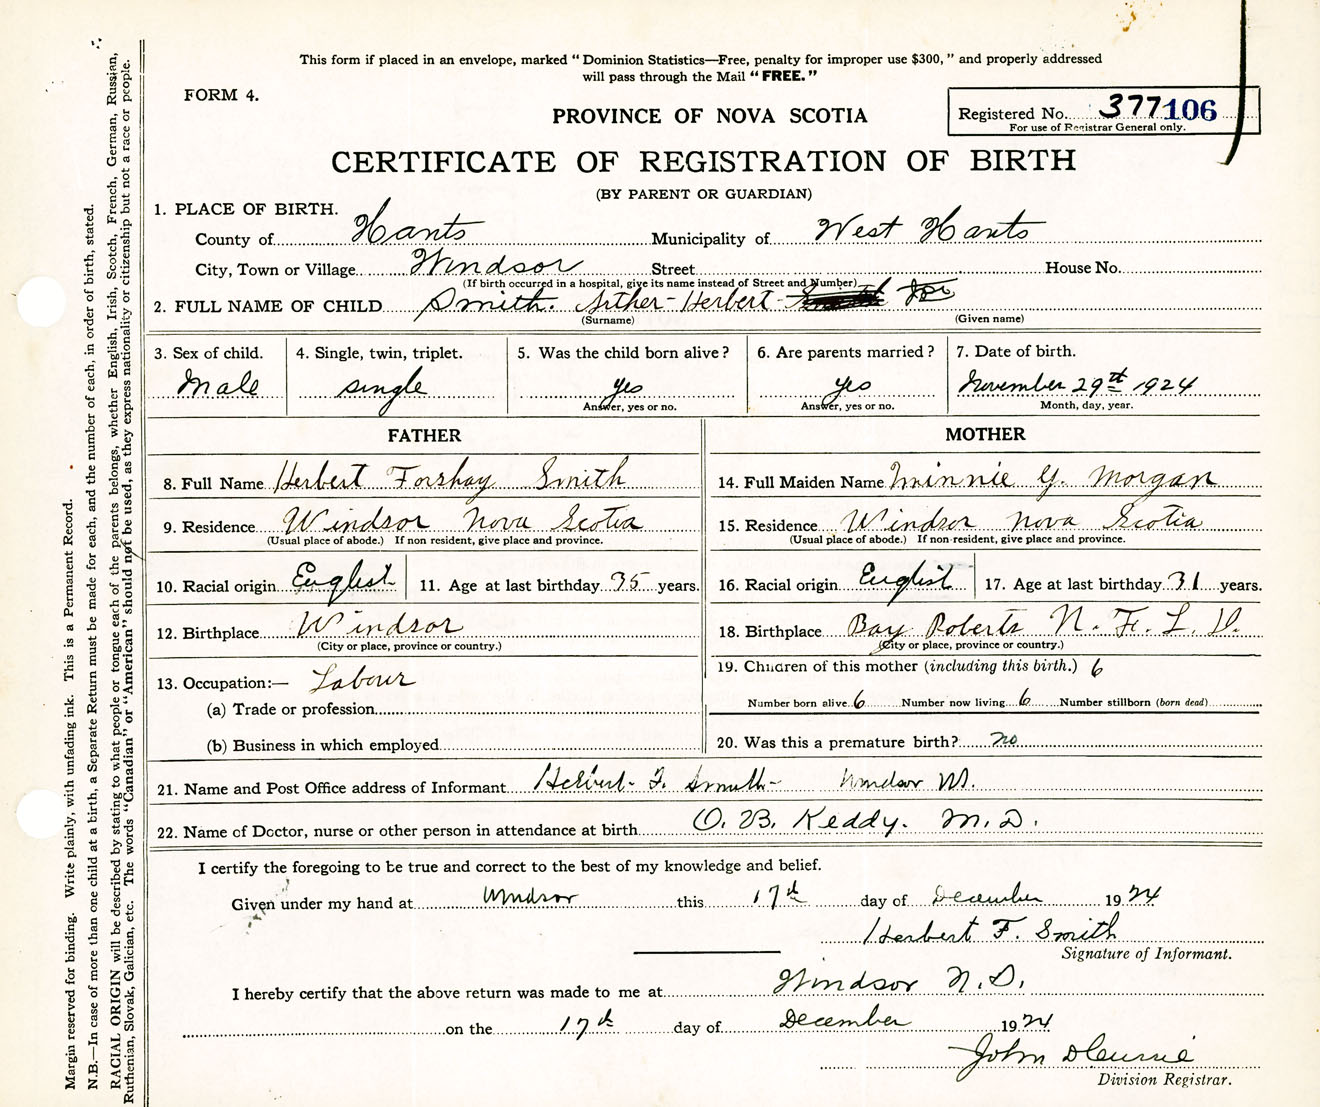 This form if placed in an envelope, marked “Dominion Statistics—Free, penalty for improper use $300,” and properly addressed
will pass through the Mail “FREE.”
FORM 4.
PROVINCE OF NOVA SCOTIA
Registered No. 377106
For use of Registrar General only.
CERTIFICATE OF REGISTRATION OF BIRTH
(BY PARENT OR GUARDIAN)
1. PLACE OF BIRTH.
County of Hants Municipality of West Hants
City, Town or Village Windsor Street House No.
(If birth occurred in a hospital, give its name instead of Street and Number)
2. FULL NAME OF CHILD Smith. Arther-Herbert-
(Surname) (Given name)
3. Sex of child. 4. Single, twin, triplet. 5. Was the child born alive? 6. Are parents married? 7. Date of birth.
Male single yes yes November 29th 1924
Answer, yes or no. Answer, yes or no. Month, day, year.
FATHER MOTHER
8. Full Name Herbert Forshay Smith 14. Full Maiden Name Minnie G. Morgan
9. Residence Windsor Nova Scotia 15. Residence Windsor Nova Scotia
(Usual place of abode.) If non resident, give place and province. (Usual place of abode.) If non-resident, give place and province.
10. Racial origin English 11. Age at last birthday 35 years. 16. Racial origin English 17. Age at last birthday 31 years.
12. Birthplace Windsor 18. Birthplace Bay Roberts N. F. L. D.
(City or place, province or country.) (City or place, province or country.)
13. Occupation:— Labour 19. Children of this mother (including this birth.) 6
(a) Trade or profession Number born alive 6 Number now living 6 Number stillborn (born dead)
(b) Business in which employed 20. Was this a premature birth? no
21. Name and Post Office address of Informant Herbert F. Smith Windsor
22. Name of Doctor, nurse or other person in attendance at birth O. B. Keddy. M.D.
I certify the foregoing to be true and correct to the best of my knowledge and belief.
Given under my hand at Windsor this 17th day of December 1924
Herbert F. Smith
Signature of Informant.
I hereby certify that the above return was made to me at Windsor N.S.
on the 17th day of December 1924
John
Division Registrar.
Margin reserved for binding. Write plainly, with unfading ink. This is a Permanent Record.
N.B.—In case of more than one child at a birth, a Separate Return must be made for each, and the number of each, in order of birth, stated.
RACIAL ORIGIN will be described by stating to what people or tongue each of the parents belongs, whether English, Irish, Scotch, French, German, Russian,
Ruthenian, Slovak, Galician, etc. The words “Canadian” or “American” should not be used, as they express nationality or citizenship but not a race or people.